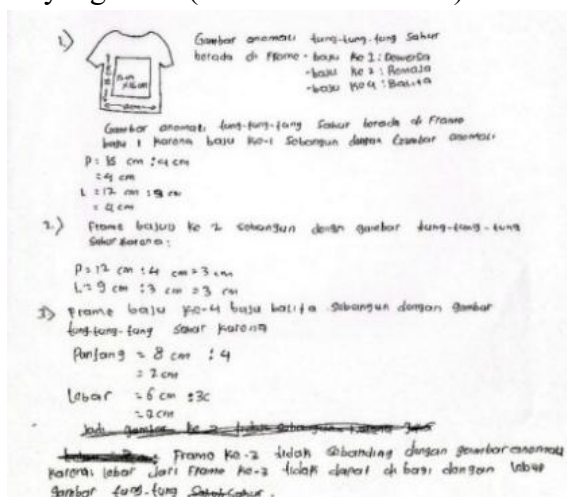 1.) Gambar anomali tung-tung-tung Sahur
berada di Frame - baju Ke 1 : Dewasa
- baju Ke 2 : Remaja
- baju Ke 4 : Balita
Gambar anomali tung-tung-tung Sahur berada di Frame
baju 1 Karena baju Ke-1 Sebangun dengan Gambar anomali
P = 16 cm : 4 cm
= 4 cm
L = 12 cm : 3 cm
= 4 cm
2.) Frame baju Ke 2 sebangun dengan gambar tung-tung-tung
Sahur Karena :
P = 12 cm : 4 cm = 3 cm
L = 9 cm : 3 cm = 3 cm
3) Frame baju Ke-4 baju balita Sebangun dengan gambar
tung-tung-tung Sahur Karena
Panjang = 8 cm : 4
= 2 cm
Lebar = 6 cm : 3c
= 2 cm
Jadi gambar ke 3 tidak sebangun karena
Frame Ke-3 tidak sebanding dengan gambar anomali
Karena lebar dari Frame Ke-3 tidak dapat di bagi dengan lebar
gambar tung-tung